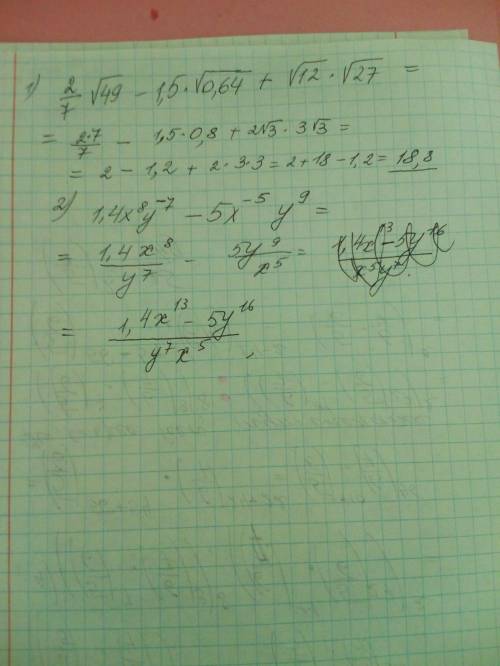 1) 2/7 √49 − 1,5·√0,64 + √12 · √27 =
= 2·7/7 − 1,5·0,8 + 2√3 · 3√3 =
= 2 − 1,2 + 2·3·3 = 2+18−1,2 = 18,8
2) 1,4x⁸y⁻⁷ − 5x⁻⁵ y⁹ =
= 1,4x⁸/y⁷ − 5y⁹/x⁵ = 1,4x¹³ − 5y¹⁶/x⁵y⁷.
= 1,4x¹³ − 5y¹⁶/y⁷x⁵ ,